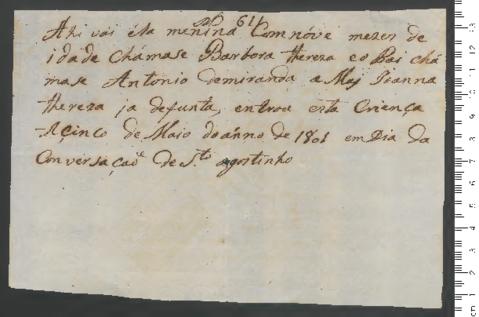 Nº 614
Ahi vai ésta menina Com nóve mezes de
idade chámase Barbora thereza e o Pai chá
mase Antonio de miranda a Maj Joanna
thereza ja defunta, entrou esta Criença
a cinco de Maio do anno de 1801 em Dia da
Conversação de S.to agostinho